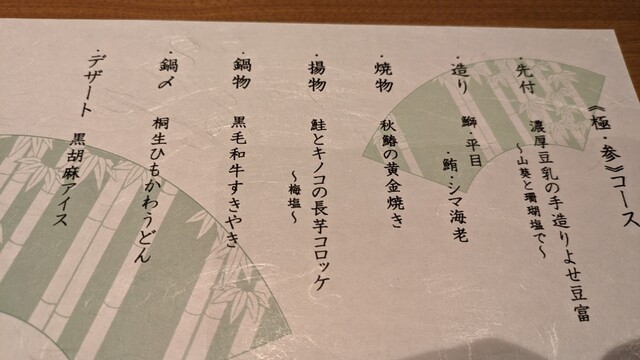 《極・参》コース
・先付　濃厚豆乳の手造りよせ豆富
～山葵と珊瑚塩で～
・造り　鰤・平目
・鮪・シマ海老
・焼物　秋鰆の黄金焼き
・揚物　鮭とキノコの長芋コロッケ
～梅塩～
・鍋物　黒毛和牛すきやき
・鍋〆　桐生ひもかわうどん
・デザート　黒胡麻アイス